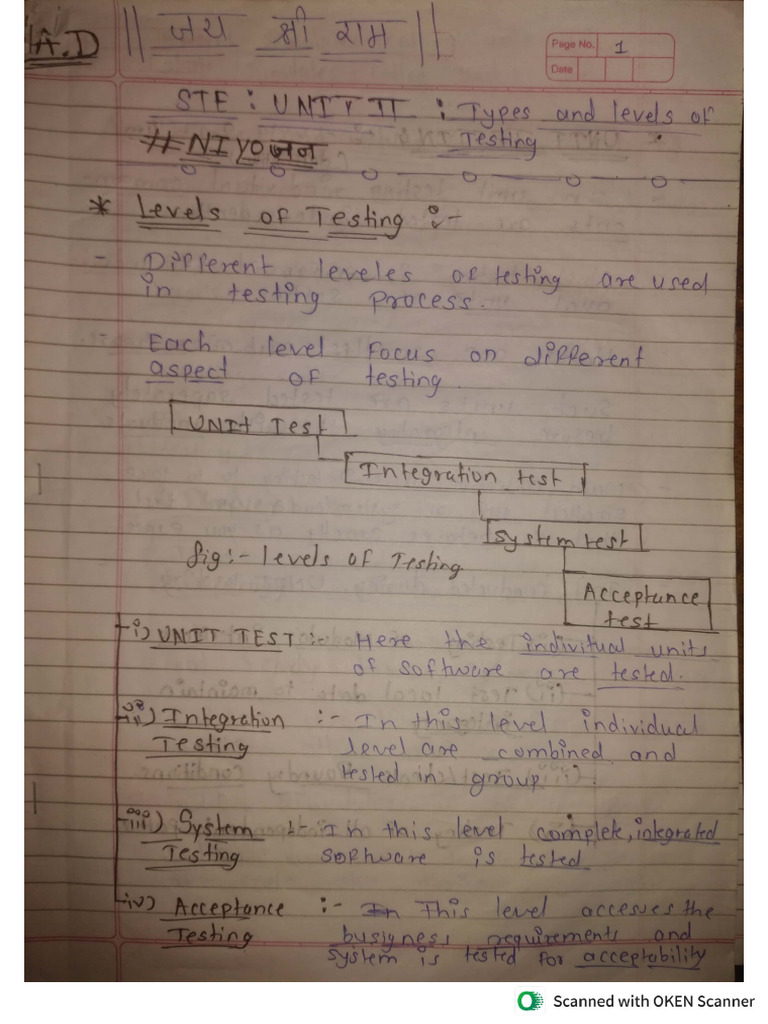 A.D
|| जय श्री राम ||
Page No. 1
Date
STE : UNIT II : Types and levels of
Testing
# NIYOजन
* Levels of Testing :-
- Different leveles of testing are used
in testing process.
- Each level focus on different
aspect of testing.
UNIT Test
Integration test
System test
fig:- levels of Testing
Acceptance
test
i) UNIT TEST :- Here the indivitual units
of software are tested.
ii) Integration :- In this level individual
Testing level are combined and
tested in group.
iii) System :- In this level complete, integrated
Testing software is tested
iv) Acceptance :- In This level accesues the
Testing busigness requirements and
system is tested for acceptability
Scanned with OKEN Scanner